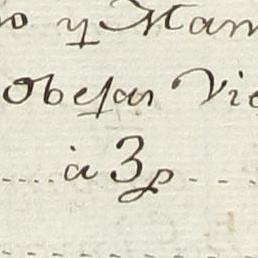 o y Man
Obejas Vie
à 3 p